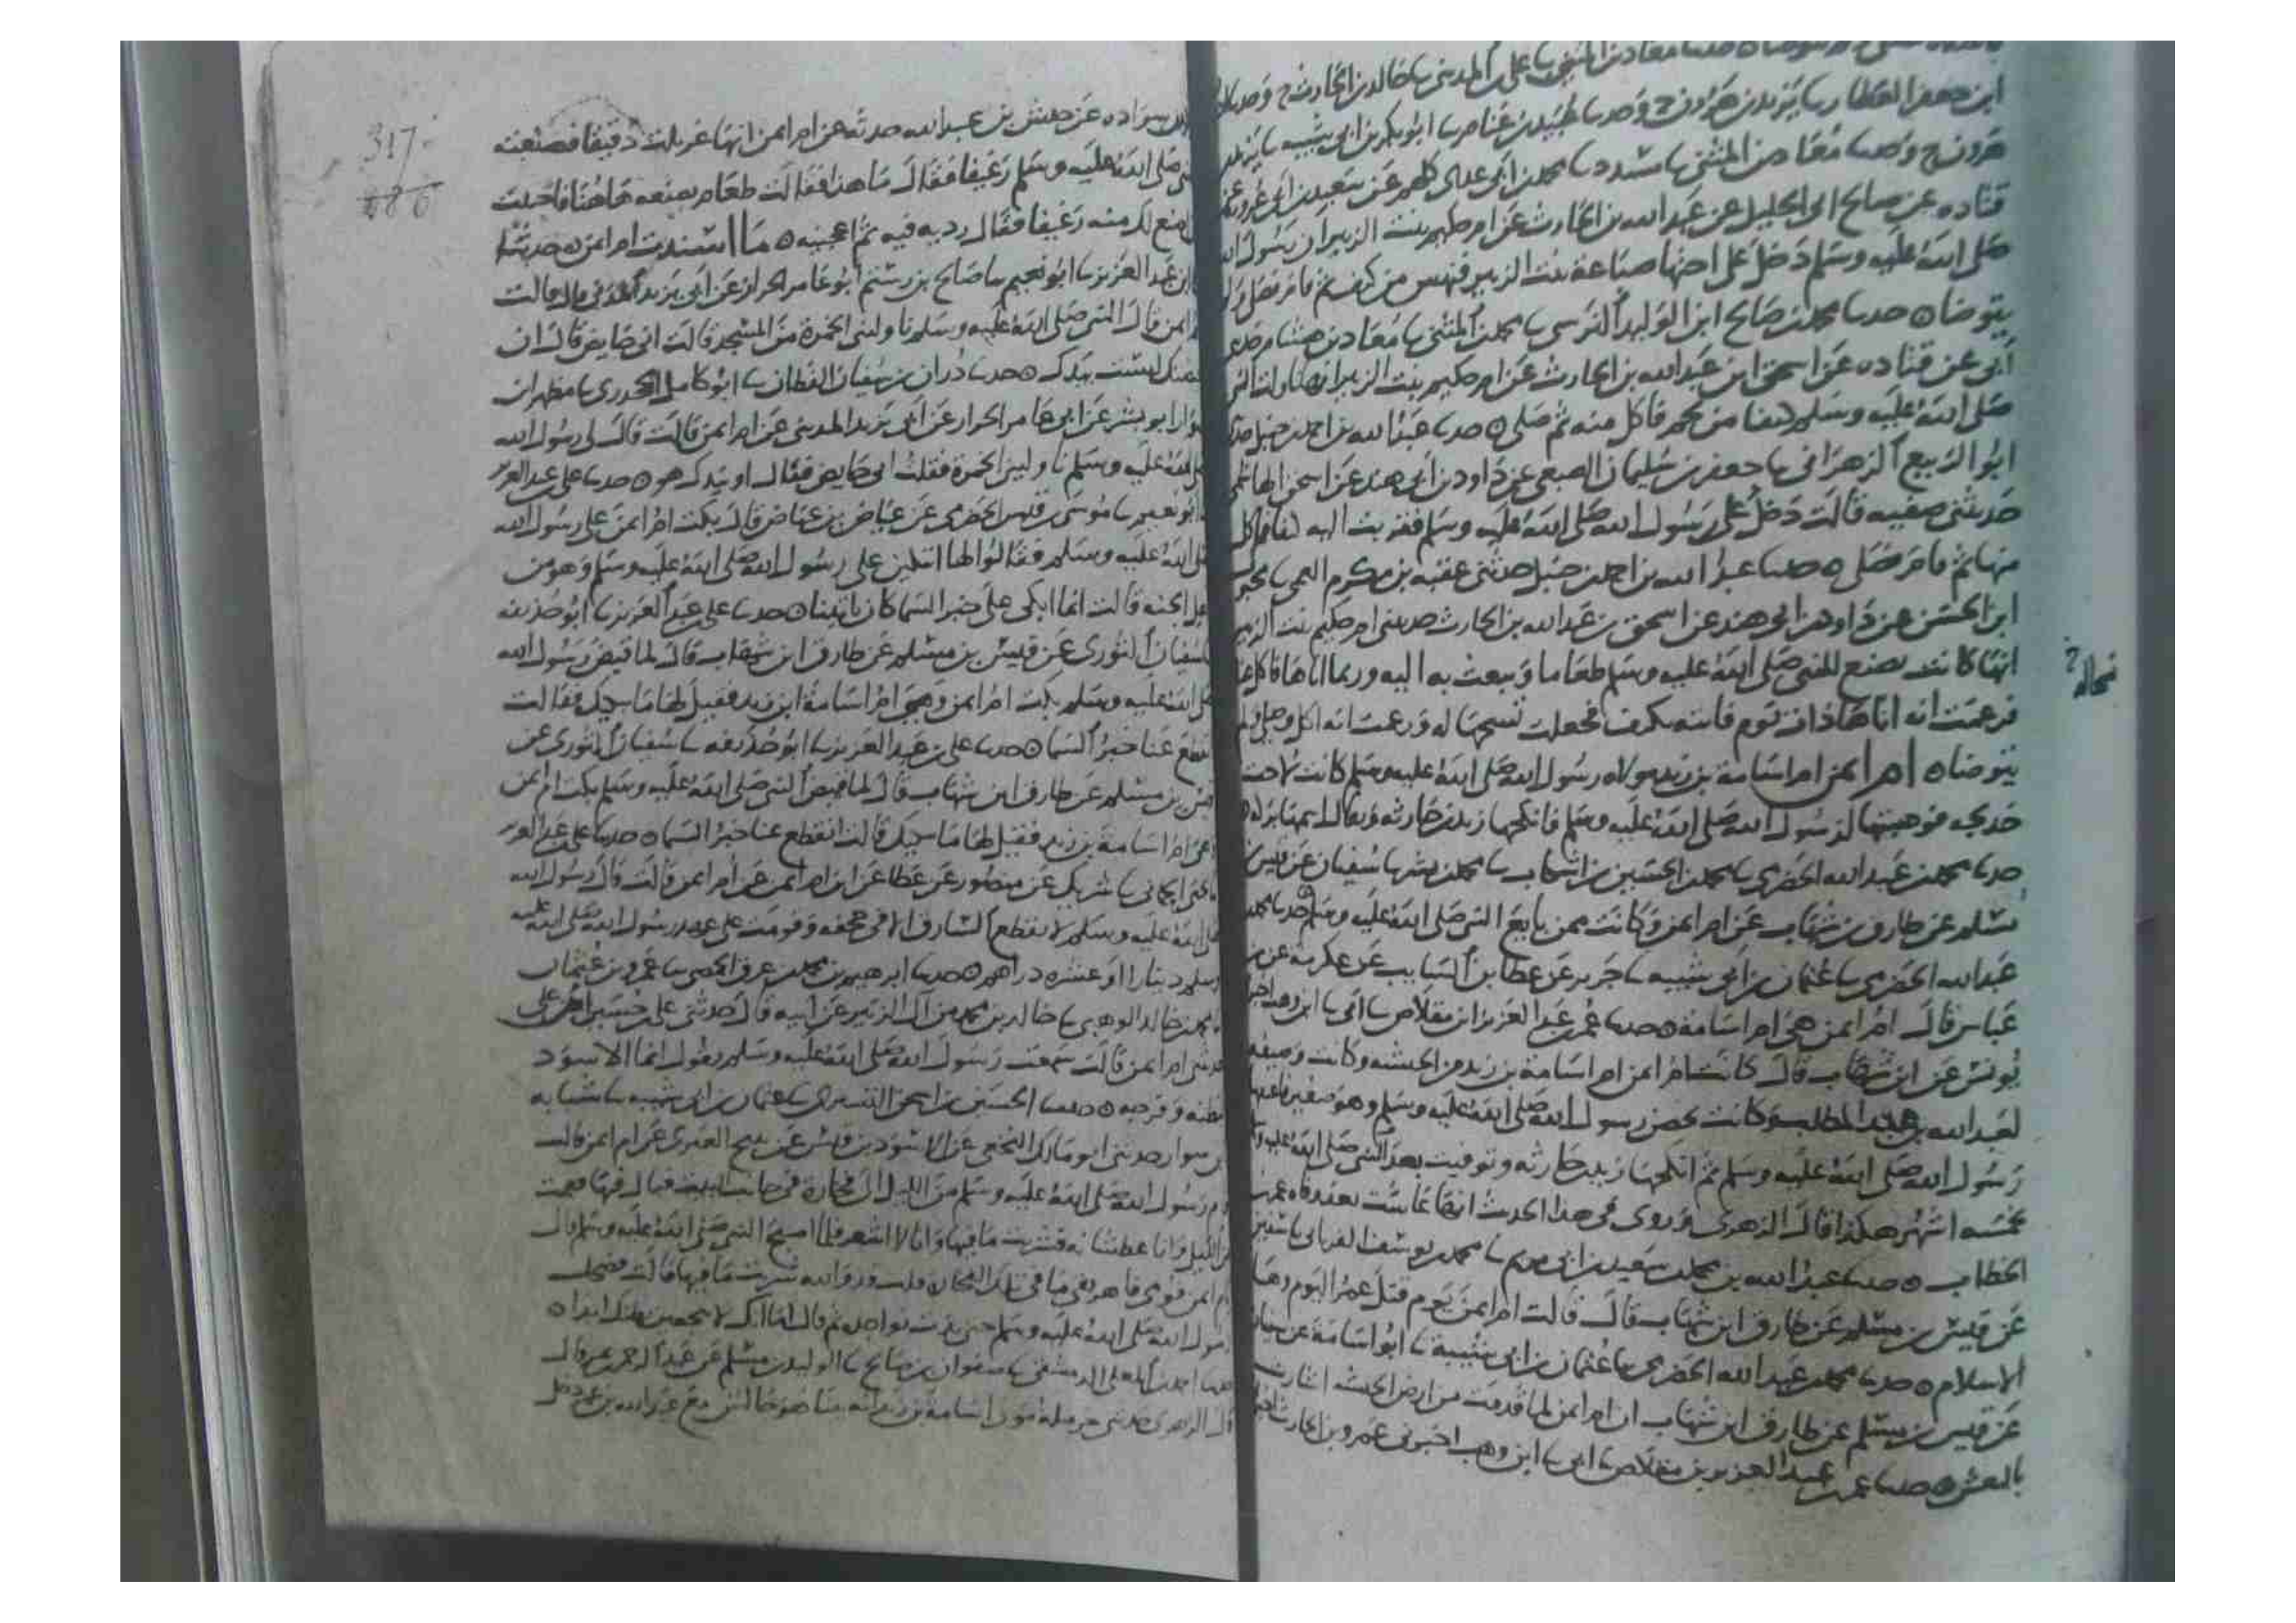 ابن جعفر العطار ىا يزيد بن هرون ح وحدىا عبيد بن غنام ىا ابو بكر بن ابي شيبه ىا يزيد بن
هرون ح وحدىا معاذ بن المثنى ىا مسدد ىا محمد بن ابي عدي كلهم عن سعيد بن ابي عروبة عن
قتاده عن صالح ابي الخليل عن عبد الله بن الحارث عن ام حكيم بنت الزبير ان رسول الله
صلى الله عليه وسلم دخل على اختها ضباعة بنت الزبير فنهس من كتف ثم قام فصلى ولم
يتوضا ه حدىا محمد بن صالح ابن الوليد النرسي ىا محمد بن المثنى ىا معاذ بن هشام حدثني
أبي عن قتاده عن اسحق ابن عبد الله بن الحارث عن ام حكيم بنت الزبير انها ناولت النبي
صلى الله عليه وسلم كتفا من لحم فاكل منه ثم صلى ه حدىا عبد الله بن احمد بن حنبل حدثنا
ابو الربيع الزهراني ىا جعفر بن سليمان الضبعي عن داود بن ابي هند عن اسحق الهاشمي
حدثتني صفيه قالت دخل علي رسول الله صلى الله عليه وسلم فقربت اليه كتفا فاكل
منها ثم قام فصلى ه حدىا عبد الله بن احمد بن حنبل حدثني عقبه بن مكرم العمي ىا محبوب
ابن الحسن عن داود بن ابي هند عن اسحق بن عبد الله بن الحارث حدثتني ام حكيم بنت الزبير
انها كانت تصنع للنبي صلى الله عليه وسلم طعاما وتبعث به اليه وربما اتاها فاكل عندها
فزعمت انه اتاها ذات يوم فاتته بكتف فجعلت تسحها له وزعمت انه اكل وصلى ولم
يتوضا ه ام ايمن ام اسامة بن زيد مولاه رسول الله صلى الله عليه وسلم كانت لاخت
خديجه فوهبتها لرسول الله صلى الله عليه وسلم فانكحها زيد بن حارثه ويقال اسمها بركه ه
حدىا محمد بن عبد الله الحضرمي ىا محمد بن الحسين بن اشكاب ىا محمد بن بشر ىا سفيان عن قيس بن
مسلم عن طارق بن شهاب عن ام ايمن وكانت ممن بايع النبي صلى الله عليه وسلم ه حدىا محمد بن
عبد الله الحضرمي ىا عثمان بن ابي شيبه ىا جرير عن عطا بن السايب عن عكرمة عن بن
عباس قال ام ايمن هي ام اسامة ه حدىا عمر بن عبد العزيز ابن مقلاص ىا ابي ىا ابن وهب اخبرني
يونس عن ابن شهاب قال كانت ام ايمن ام اسامة بن زيد من الحبشه وكانت وصيفه
لعبد الله بن عبد المطلب وكانت تحضن رسول الله صلى الله عليه وسلم وهو صغير فاعتقها
رسول الله صلى الله عليه وسلم ثم انكحها زيد بن حارثه وتوفيت بعد النبي صلى الله عليه وسلم
بخمسه اشهر هكذا قال الزهري وروي في هذا الحديث انها عاشت بعد وفاه عمر بن
الخطاب ه حدىا عبد الله بن محمد بن سعيد بن ابي مريم ىا محمد بن يوسف الفريابي ىا سفين
عن قيس بن مسلم عن طارق ابن شهاب قال قالت ام ايمن يوم قتل عمر اليوم وها
الاسلام ه حدىا محمد بن عبد الله الحضرمي ىا عثمان بن ابي شيبة ىا ابو اسامة عن سفيان
عن قيس بن مسلم عن طارق ابن شهاب ان ام ايمن لما قدمت من ارض الحبشه اشارت
بالنعش ه حدىا عمر بن عبد العزيز بن مقلاص ىا ابي ىا ابن وهب اخبرني عمرو بن الحارث اخبرني
نخاله ؟
317
686
بكر بن سواده عن حنش بن عبد الله حدثه عن ام ايمن انها غربلت دقيقا فصنعته
للنبي صلى الله عليه وسلم رغيفا فقال ما هذا فقالت طعام يصنعه هاهنا فاحببت
ان اصنع لك منه رغيفا فقال رديه فيه ثم اعجنيه ه ما اسندت ام ايمن ه حدثنا
علي ابن عبد العزيز ىا ابو نعيم ىا صالح بن رستم ابو عامر الخزاز عن ابي يزيد المدني قال قالت
ام ايمن قال النبي صلى الله عليه وسلم ناولني الخمرة من المسجد قالت اني حايض قال ان
حيضتك ليست بيدك ه حدىا دران بن سفيان القطان ىا ابو كامل الجحدري ىا مطهر بن
سوار ابو بشر عن ابي عامر الخزاز عن ابي يزيد المديني عن ام ايمن قالت قال لي رسول الله
صلى الله عليه وسلم ناوليني الخمرة فقلت اني حايض فقال او بيدك هو ه حدىا علي بن عبد العزيز
ىا ابو نعيم ىا موسى بن قيس الحضرمي عن عياض بن عياض قال بكت ام ايمن على رسول الله
صلى الله عليه وسلم فقالوا لها اتبكين على رسول الله صلى الله عليه وسلم وهو من
اهل الجنه قالت انما ابكي على خبر السما كان ياتينا ه حدىا علي بن عبد العزيز ىا ابو حذيفه
ىا سفيان الثوري عن قيس بن مسلم عن طارق ابن شهاب قال لما قبض رسول الله
صلى الله عليه وسلم بكت ام ايمن وهي ام اسامة ابن زيد فقيل لها ما يبكيك فقالت
انقطع عنا خبر السما ه حدىا علي بن عبد العزيز ىا ابو حذيفه ىا سفيان الثوري عن
قيس بن مسلم عن طارق ابن شهاب قال لما قبض النبي صلى الله عليه وسلم بكت ام ايمن
وهي ام اسامة بن زيد فقيل لها ما يبكيك قالت انقطع عنا خبر السما ه حدىا علي بن عبد العزيز
ىا يحيى الحماني ىا شريك عن منصور عن عطا عن ابن ام ايمن عن ام ايمن قالت قال رسول الله
صلى الله عليه وسلم لا يقطع السارق الا في حجفه وقومت على عهد رسول الله صلى الله عليه
وسلم دينارا او عشره دراهم ه حدىا ابرهيم بن محمد بن عرق الحمصي ىا عمرو بن عثمان
ىا محمد بن خالد الوهبي ىا خالد بن محمد من آل الزبير عن ابيه قال حدثني علي بن حسين
حدثتني ام ايمن قالت سمعت رسول الله صلى الله عليه وسلم يقول انما الاسود
لبطنه وفرجه ه حدىا الحسين بن اسحق التستري ىا عثمان بن ابي شيبه ىا شبابه
بن سوار حدثني ابو مالك النخعي عن الاسود بن قيس عن نبيح العنزي عن ام ايمن قالت
قام رسول الله صلى الله عليه وسلم من الليل الى فخارة في جانب البيت فبال فيها فقمت
من الليل وانا عطشانه فشربت ما فيها وانا لا اشعر فلما اصبح النبي صلى الله عليه وسلم قال
يا ام ايمن قومي فاهريقي ما في تلك الفخاره قلت قد والله شربت ما فيها قالت فضحك
رسول الله صلى الله عليه وسلم حتى بدت نواجذه ثم قال اما انك لا تجعين بطنك ابدا ه
حدىا احمد بن المعلى الدمشقي ىا صفوان بن صالح ىا الوليد بن مسلم عن عبد الرحمن بن نمر قال
قال الزهري حدثني حرمله مولى اسامة بن زيد انه بينا هو جالس مع عبد الله بن عمر دخل